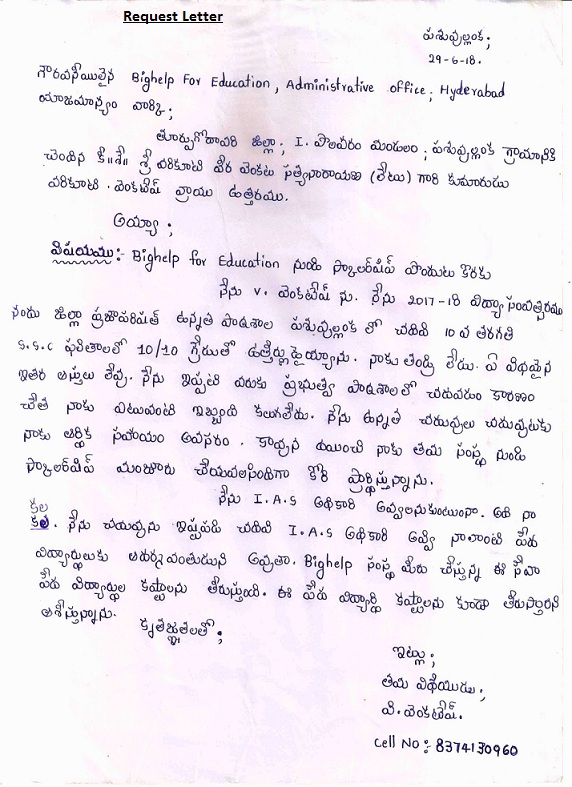 Request Letter
పశువుల్లంక;
29-6-18.
గౌరవనీయులైన Bighelp For Education, Administrative office; Hyderabad
యాజమాన్యం వారికి;
తూర్పుగోదావరి జిల్లా; I. పోలవరం మండలం; పశువుల్లంక గ్రామానికి
చెందిన కీ॥శే॥ శ్రీ వరికూటి వీర వెంకట సత్యనారాయణ (లేటు) గారి కుమారుడు
వరికూటి. వెంకటేష్ వ్రాయు ఉత్తరము.
అయ్యా;
విషయము:- Bighelp for Education నుండి స్కాలర్‌షిప్ పొందుట కొరకు
నేను V. వెంకటేష్ ను. నేను 2017-18 విద్యా సంవత్సరము
నందు జిల్లా ప్రజాపరిషత్ ఉన్నత పాఠశాల పశువుల్లంక లో చదివి 10 వ తరగతి
S.S.C ఫలితాలలో 10/10 గ్రేడుతో ఉత్తీర్ణుడైయ్యాను. నాకు తండ్రి లేడు. ఏ విధమైన
ఇతర ఆస్తులు లేవు. నేను ఇప్పటి వరకు ప్రభుత్వ పాఠశాలలో చదవడం కారణం
చేత నాకు ఎటువంటి ఇబ్బంది కలుగలేదు. నేను ఉన్నత చదువులు చదువుటకు
నాకు ఆర్థిక సహాయం అవసరం. కావున దయించి నాకు తమ సంస్థ నుండి
స్కాలర్‌షిప్ మంజూరు చేయవలసిందిగా కోరి ప్రార్థిస్తున్నాను.
నేను I.A.S అధికారి అవ్వాలనుకుంటున్నా. అది నా
కల
కల. నేను చదువును ఇష్టపడి చదివి I.A.S అధికారి అవ్వి నాలాంటి పేద
విద్యార్థులకు ఆదర్శవంతుడుని అవుతా. Bighelp సంస్థ మీరు చేస్తున్న ఈ సేవా
పేద విద్యార్థుల కష్టాలను తీరుస్తుంది. ఈ పేద విద్యార్థి కష్టాలను కూడా తీరుస్తారని
ఆశిస్తున్నాను.
కృతజ్ఞతలతో;
ఇట్లు;
తమ విధేయుడు;
వి. వెంకటేష్.
Cell No:- 8374130960